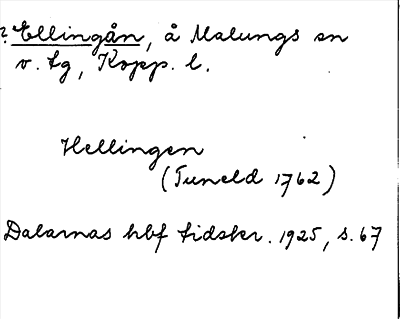 ? Ellingån, å Malungs sn
v. tg, Kopp. l.
Hellingen
(Tuneld 1762)
Dalarnas hbf tidskr. 1925, s. 67